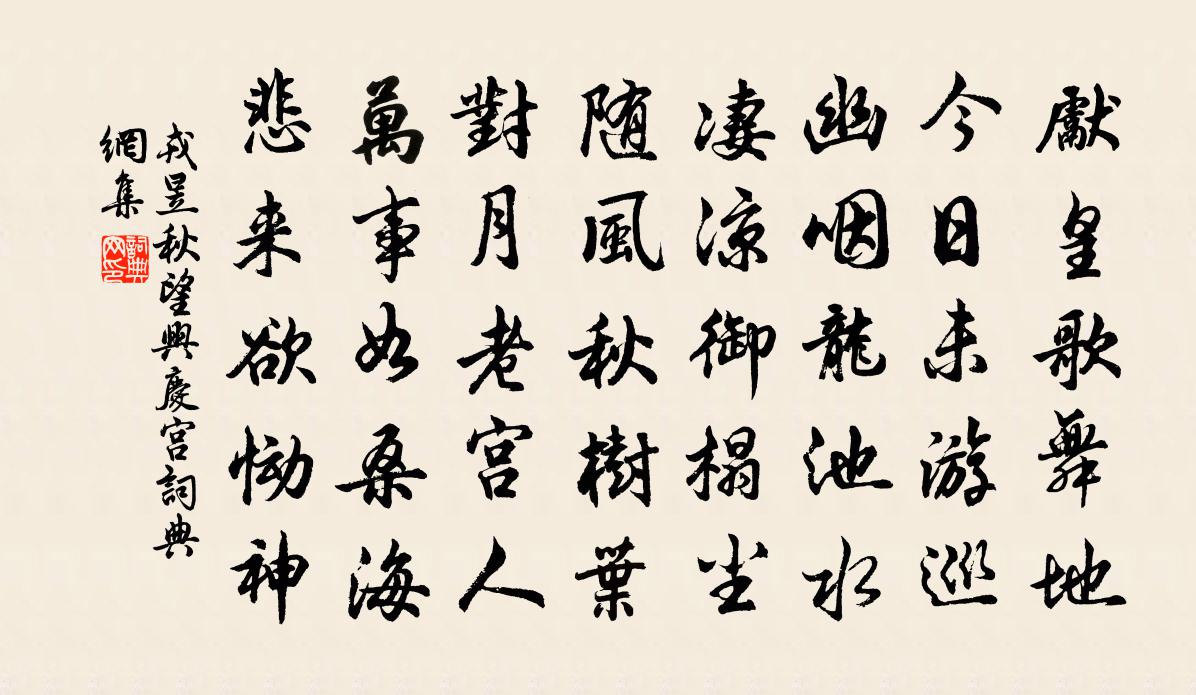 獻皇歌舞地
今日未游巡
幽咽龍池水
凄涼御榻尘
随風秋樹葉
對月老宮人
萬事如桑海
悲来欲恸神
戎昱秋望興慶宮詞典
網集
詞典
网印